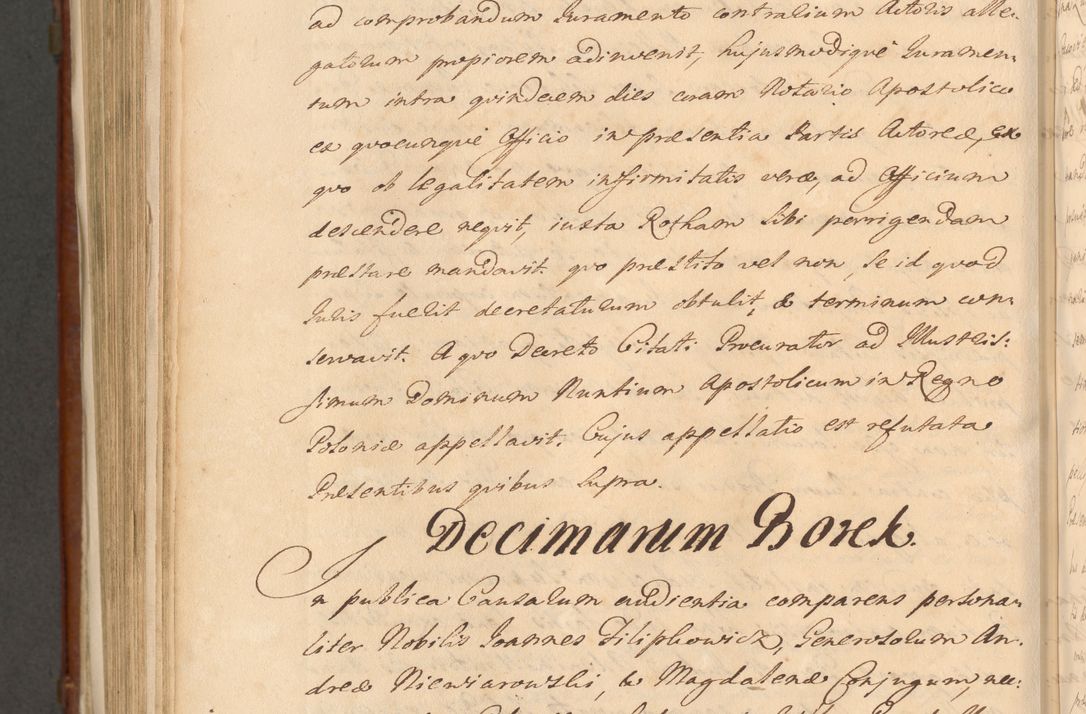 ad comprobandum Juramento contrarium Actoris alle-
gatorum propiorem adinvenit, hujusmodique Juramen-
tum intra quindecem dies coram Notario Apostolico
ex quocunque Officio in praesentia Partis Actoreae, ex
quo ob legalitatem infirmitatis verae, ad Officium
descendere nequit, iuxta Rotham sibi porrigendam
praestare mandavit quo praestito vel non, se id quod
Juris fuerit decretaturum obtulit, & terminum con-
servavit. A quo Decreto Citati Procurator ad Illustris:
simum Dominum Nuntium Apostolicum in Regno
Poloniae appellavit. Cujus appellatio est refutata
Praesentibus quibus supra.
Decimarum Borek.
In publica Causarum audientia comparens persona-
liter Nobilis Joannes Filipkowicz, Generosorum An-
dreae Niewiarowski, & Magdalenae Conjugum, nec: